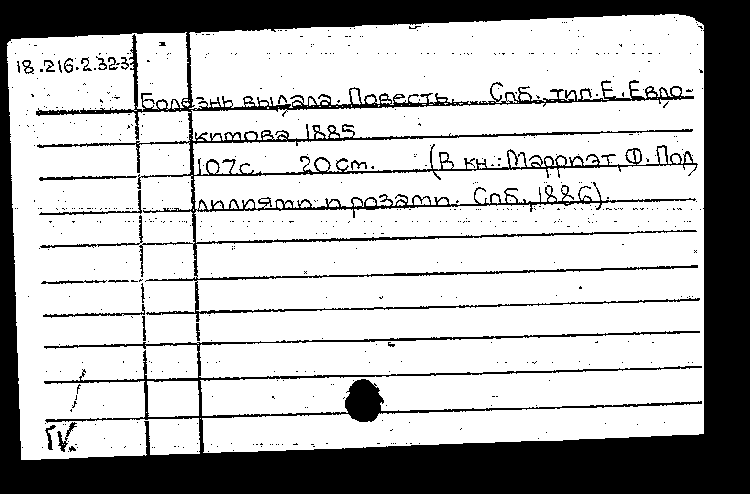 18.216.2.32-33
Болезнь выдала. Повесть. Спб., тип. Е. Евдо-
кимова, 1885
107 с. 20 см. (В кн.: Марриэт, Ф. Под
лилиями и розами. Спб., 1886).
IV.